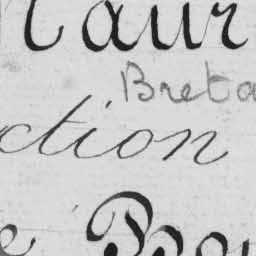 Maur
Breta
ction
e Bou